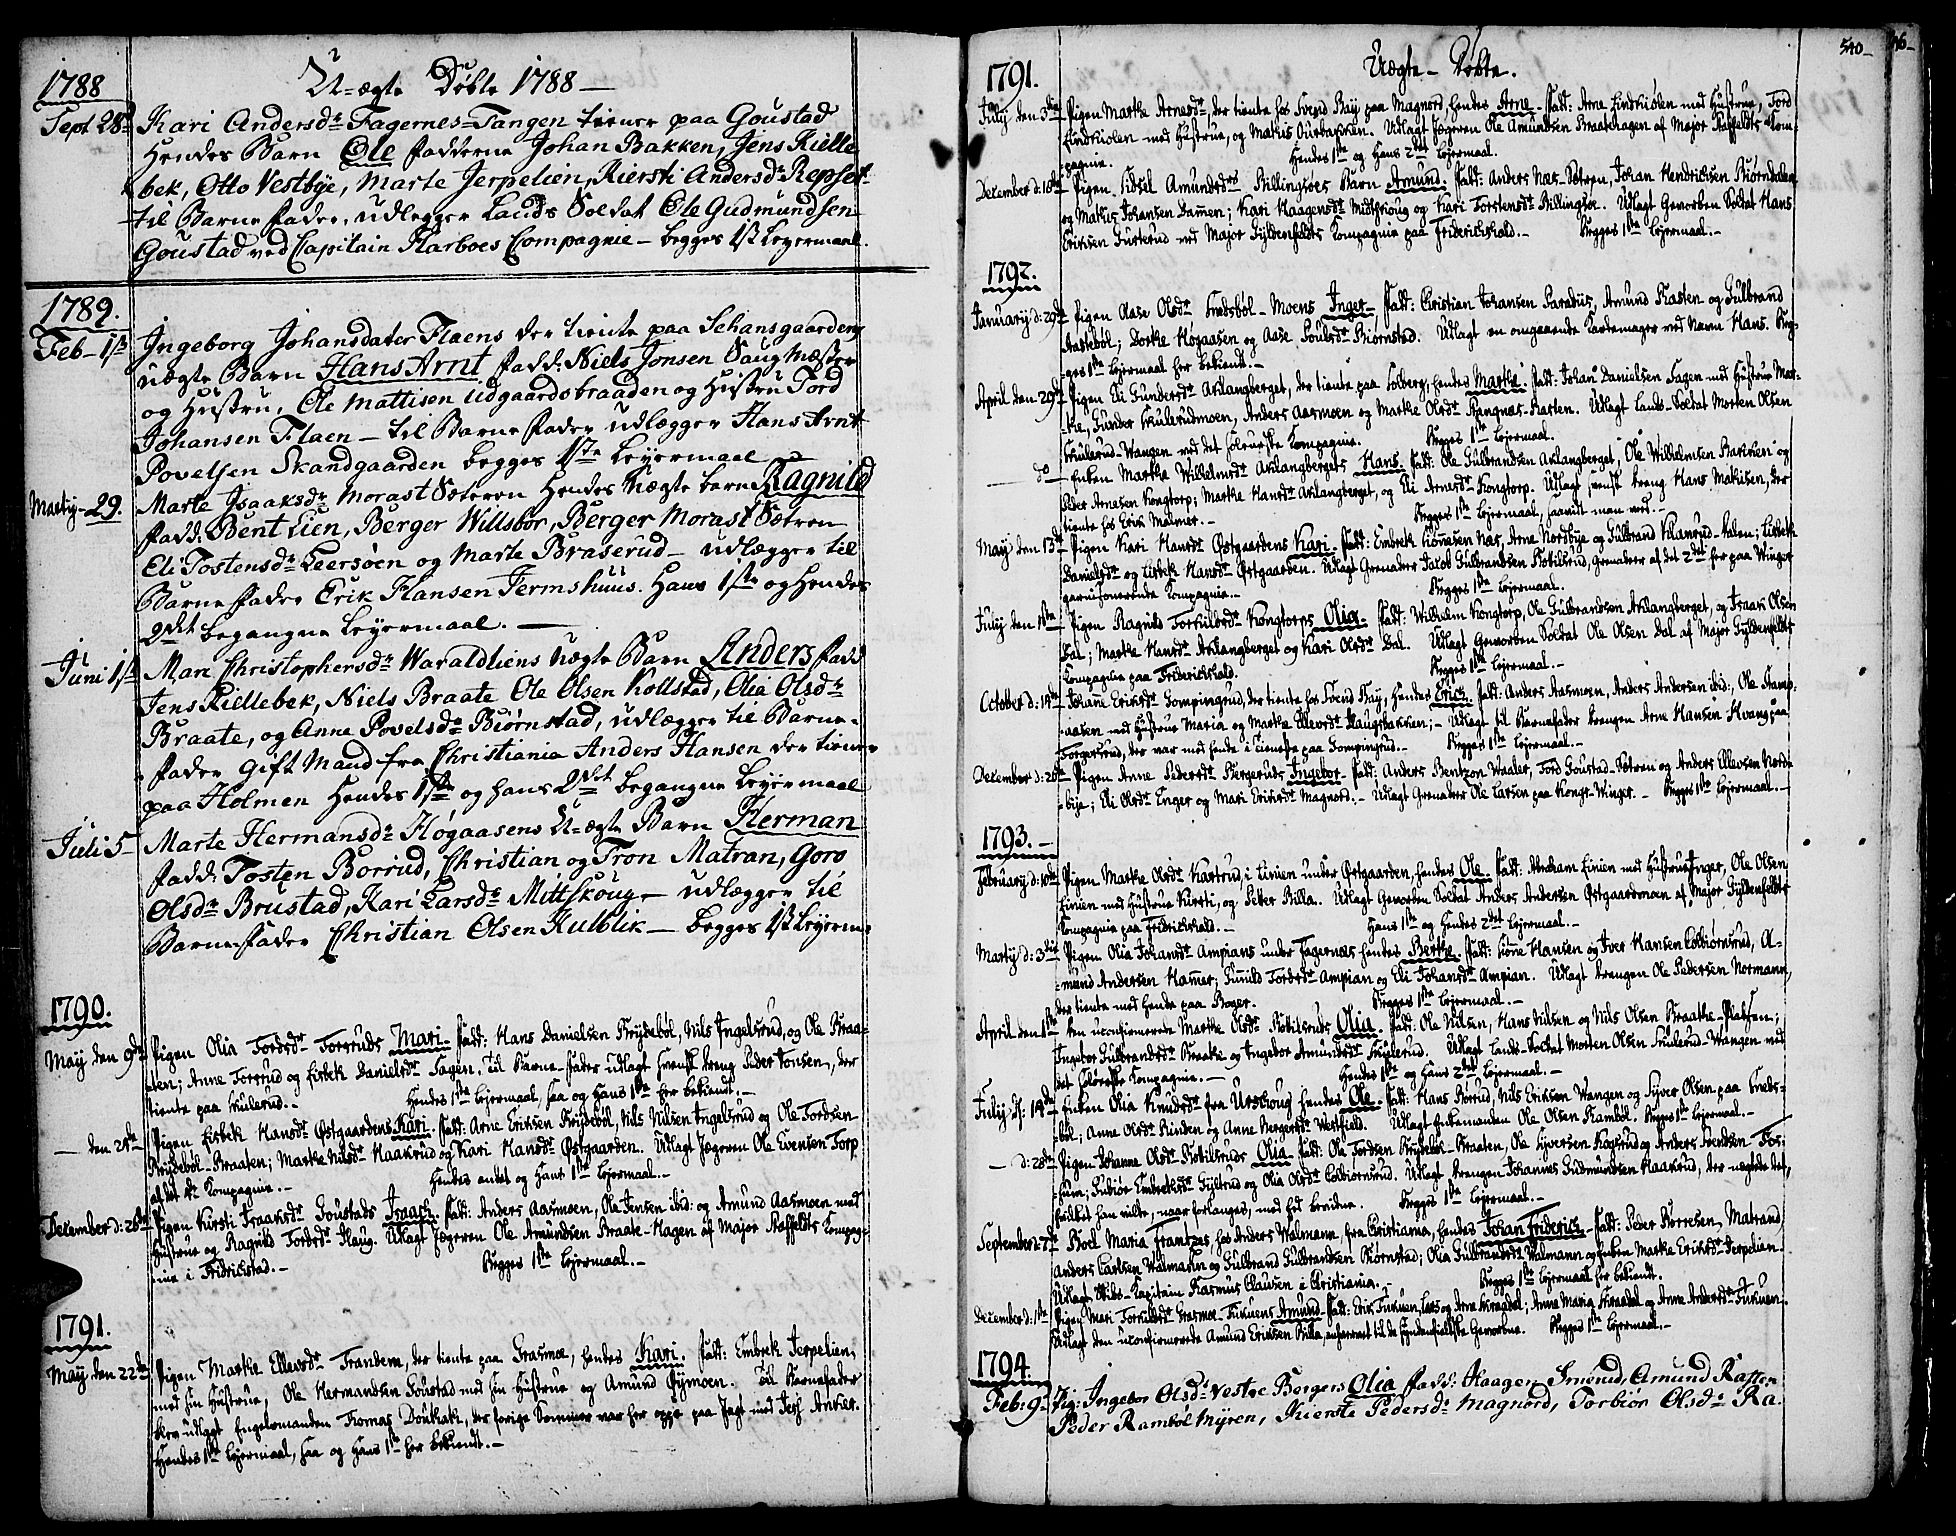 1788
U-ægte Døbte 1788 —
Sept 28d Kari Andersdr Fagernes-Tangen tiener paa Goustad
Hendes Barn Ole fadderne Johan Bakken, Jens Kielle
bek, Otto Vestbye, Marte Jerpelien, Kiersti Andersdr Repset-
til Barne fader, udlegger Lands Soldat Ole Gudmundsen
Goustad ved Capitain Harboes Compagnie – begges 1st Leyermaal.
1789.
Feb – 1st Ingeborg Johansdater Flaens der tiente paa Schansgaarden
uægte Barn Hans Arnt fadd: Niels Jonsen Saug Mæster
og Hustru, Ole Mattisen Udgaardsbraaden og Hustru Tord
Johansen Flaen – til Barne fader udlægger Hans Arnt
Povelsen Skandgaarden begges 1ste Leyermaal
Martij – 29. Marte Isaaksdr Morast Sæteren Hendes Uægte barn Ragnild
fadd: Bent Lien, Berger Willsbør, Berger Morast Sætren
Eli Tostensdr Leersøen og Marte Braserud – udlægger til
Barne fader Erik Hansen Fermshuus. Hans 1ste og Hendes
2det begangne Leyermaal. —
Juni 1ste Mari Christophersdr Waraldliens Uægte Barn Anders fadd
Jens Kiellebek, Niels Braate Ole Olsen Kollstad, Olia Olsdr
Braate, og Anne Povelsdr Biørnstad, udlægger til Barne-
fader Gift Mand fra Christiania Anders Hansen der tiener
paa Holmen Hendes 1ste og hans 2det begangne Leyermaal
Juli 5 – Marte Hermansdr Høgaasens U-ægte Barn Herman
fadd: Tosten Borrud, Christian og Tron Matran, Goro
Olsdr Brustad, Kari Larsdr Mittskoug – udlægger til
Barne-fader Christian Olsen Kulblik – begges 1st Leyerm:
1790.
May den 9de Pigen Olia Tordsdr Torsruds Mari. fadd: Hans Danielsen Brydebøl, Nils Ingelsrud, og Ole Braa-
aten; Anne Torsrud og Lisbek Danielsdr Fagen. Til Barne-fader udlagt svensk dreng Peder Jonsen, der
tiente paa Skulerud. – Hendes 1ste Lejermaal, saa og Hans 1ste her bekiendt. –
— den 28de Pigen Lisbek Hansdr Østgaardens Kari. fadd: Arne Eriksen Brydebøl, Nils Nilsen Ingelsrud og Ole Tordsen
Brydebøl-Braaten; Marke Nilsdr Haakrud og Kari Hansdr Østgaarden. Udlagt Jægeren Ole Evensen Torp
af det Compagnie. – Hendes andet og Hans 1ste Lejermaal. –
December d: 26de Pigen Kirsti Isaaksdr Goustads Isaach. fadd: Anders Aasmoen, Ole Jensen ibid: og Amund Aasmoen med
Hustrue og Ragnild Tordsdr Haug. Udlagt Jægeren Ole Amundsen Braate-Hagen af Major Staffeldts Compag-
nie i Fridrichstad. – Begges 1ste Lejermaal. –
1791.
May den 22de Pigen Marke Ellevsdr Trandem, der tiente paa Grasmoe, hendes Kari. fadd: Embrek Jerpelien,
med sin Hustrue, Ole Hermandsen Goustad med sin Hustrue og Amund Øymoen. Til Barnefader
blev udlagt Engelsmanden Thomas Douthait, der forige Sommer var her oppe paa Jagt med Jess Anker.
Hendes 1ste Lejermaal, saa og Hans 1ste her bekiendt. –
540 –
1791.
Uægte – Døbte.
July den 3die Pigen Marke Arnesdr, der tiente hos Svend Bay paa Magnord, hendes Arne – fadd: Arne Lindkiølen med Hustrue, Tord
Lindkiølen med Hustrue, og Mathis Ourbakken. Udlagt Jægeren Ole Amundsen Braatehagen af Major Staffeldts Com-
pagnie. Hendes 1ste og Hans 2det Lejermaal.
December d: 18de Pigen Sidsel Amundsdr Billingsøes Barn Amund. fadd: Anders Næs-Sætren, Johan Hendrichsen Biørndalen
og Mathis Johansen Dammen; Kari Haagensdr Midtskoug og Kari Torstensdr Billingsøe. Udlagt Geworben Soldat Hans
Eriksen Gusterud ved Major Gyldenfeldts Kompagnie paa Friderichshald. – Begges 1ste Lejermaal. –
1792.
January d: 29de Pigen Aase Olsdr Snedsbøl-Moens Inger – fadd: Christian Johansen Paradiis, Amund Rasten og Gulbrand
Aastebøl; Dorke Høgaasen og Aase Poulsdr Biørnstad. Udlagt en omgaaende Kardemager ved Navn Hans. Beg-
ges 1ste Lejermaal her bekiendt. –
April den 29de Pigen Eli Gundersdr Aklangberget, der tiente paa Solberg, hendes Marke. fadd: Johan Danielsen Fagen med Hustrue Mar-
ke, Gunder Skulerudmoen, Anders Aasmoen og Marke Olsdr Rangnæs-Rasten. Udlagt Lands-Soldat Morten Olsen
Skulerud-Wangen ved det Solørske Kompagnie. Begges 1ste Lejermaal.
— do — Enken Marke Wilhelmsdr Aklangbergets Hans. fadd: Ole Gulbrandsen Aklangberget, Ole Wilhelmsen Bakken og
Peder Arnesen Kongtorp; Marke Hansdr Aklangberget, og Eli Arnesdr Kongtorp. Udlagt svensk dreng Hans Mathisen, der
tiente hos Erik Malmer. – Begges 1ste Lejermaal, saavidt man veed. –
May den 13de Pigen Kari Hansdr Østgaardens Kari. fadd: Embrek Tommesen Næs, Arne Nordbye og Gulbrand Klanrud-Halen; Lisbeth
Danielsdr og Lisbek Hansdr Østgaarden. Udlagt Grenadeer Jacob Gulbrandsen Kobilsrud, Grenadeer af det 2det her paa Winger
garnisonerende Kompagnie. – Begges 1ste Lejermaal.
July den 18de Pigen Ragnild Torkildsdr Kongtorps Olia. fadd: Wilhelm Kongtorp, Ole Gulbrandsen Aklangberget, og Isaak Olsen
Dal; Marke Hansdr Aklangberget og Kari Olsdr Dal. Udlagt Geworben Soldat Ole Olsen Dal af Major Gyldenfeldts
Kompagnie paa Friderichshald. Begges 1ste Lejermaal. –
October d: 14de Johane Eriksdr Gompingrud, der tiente hos Svend Bay, hendes Erich. fadd: Anders Aasmoen, Anders Andersen ibid:, Ole Kamp-
aasen med Hustrue Maria og Marke Ellevsdr Haugsbakken; – Udlagt til Barnefader drengen Arne Hansen Hvang paa
Torgersrud, der var med hende i tieneste paa Gompingrud. – Begges 1ste Lejermaal. –
December d: 26de Pigen Anne Pedersdr Bergeruds Ingebor – fadd: Anders Bentzon Waaler, Tord Goustad-Sætren og Anders Ellevsen Nord-
bye; Eli Olsdr Enger og Mari Eriksdr Magnord. – Udlagt Grenadeer Ole Larsen paa Kongs-Winger. – Begges 1ste Lejermaal. –
1793. –
February d: 10de Pigen Marke Olsdr Kastrud, i Linien under Østgaarden, hendes Ole. fadd: Abraham Linien med Hustrue Inger, Ole Olsen
Linien med Hustrue Kirsti, og Petter Billa. Udlagt Geworben Soldat Anders Andersen Østgaardsmoen af Major Gyldenfeldts
Kompagnie paa Friderichshald. – Hans 1ste og Hendes 2det Lejermaal. –
Marty d: 3die Pigen Olia Johansdr Ampians under Fagernæs hendes Berthe. fadd: Tønne Hansen og Iver Hansen Colbiørnsrud, A-
mund Andersen Hammer; Gunild Tordsdr Ampian og Eli Johansdr Ampian. Udlagt drengen Ole Pedersen Normann,
der tiente med hende paa Boger. Begges 1ste Lejermaal. –
April den 1ste Den uconfirmerede Marke Olsdr Kobilsruds Olia. fadd: Ole Nilsen, Hans Nilsen og Nils Olsen Braathe-Pladsen;
Ingebor Gulbrandsdr Braate og Ingebor Amundsdr Skulerud. Udlagt Lands-Soldat Morten Olsen Skulerud-Wangen ved
det Solørske Kompagnie. – Hendes 1ste og Hans 2det Lejermaal. –
July d: 14de Enken Olia Knudsdr fra Urskoug hendes Ole. fadd: Hans Rørrud, Nils Eriksen Wangen og Syver Olsen paa Sneds-
bøl; Anne Olsdr Rinden og Anne Bergersdr Westfield. Udlagt Enkemanden Ole Olsen Rambøl. Begges 1ste Lejermaal. –
— d: 28de Pigen Johanne Olsdr Kobilsruds Olia. fadd: Ole Tordsen Brydebøl-Braaten, Ole Syversen Kogsrud og Anders Svendsen Tor-
hum; Gubiør Embreksdr Gyltrud og Olia Olsdr Colbiørnsrud. Udlagt drengen Johannes Gudmundsen Haakrud, der nægtede det,
hvilket han vilde, naar forlanges, med Eed bevidne. Begges 1ste Lejermaal. –
September d: 7de Boel Maria Frantzes, hos Anders Walmann, fra Christiania, hendes Johan Friderich. fadd: Peder Børresen, Matrand,
Anders Carlsen Walmann og Gulbrand Gulbrandsen Biørnstad; Olia Gulbrandsdr Walmann og Enken Marke Eriksdr Jerpelien.
Udlagt Skibs-Kapitain Rasmus Clausen i Christiania. – Begges 1ste Lejermaal her bekiendt.
December d: 1ste Pigen Mari Torkildsdr Grasmoe-Tiskuens Amund – fadd: Erik Tiskuen, Lars og Arne Skragdal; Anne Maria Skragdal og Anne Andersdr Tiskuen.
Udlagt den uconfirmerede Amund Eriksen Billa, anhørende til de Syndenfieldske Geworbne. Begges 1ste Lejermaal. –
1794.
Feb: 9 – Pig: Ingebor Olsdr Vestre Bergers Olia fadd: Haagen Smørud, Amund Rasten
Peder Rambøl Myren, Kierste Pedersdr Magnord, Torbiør Olsdr Ra.